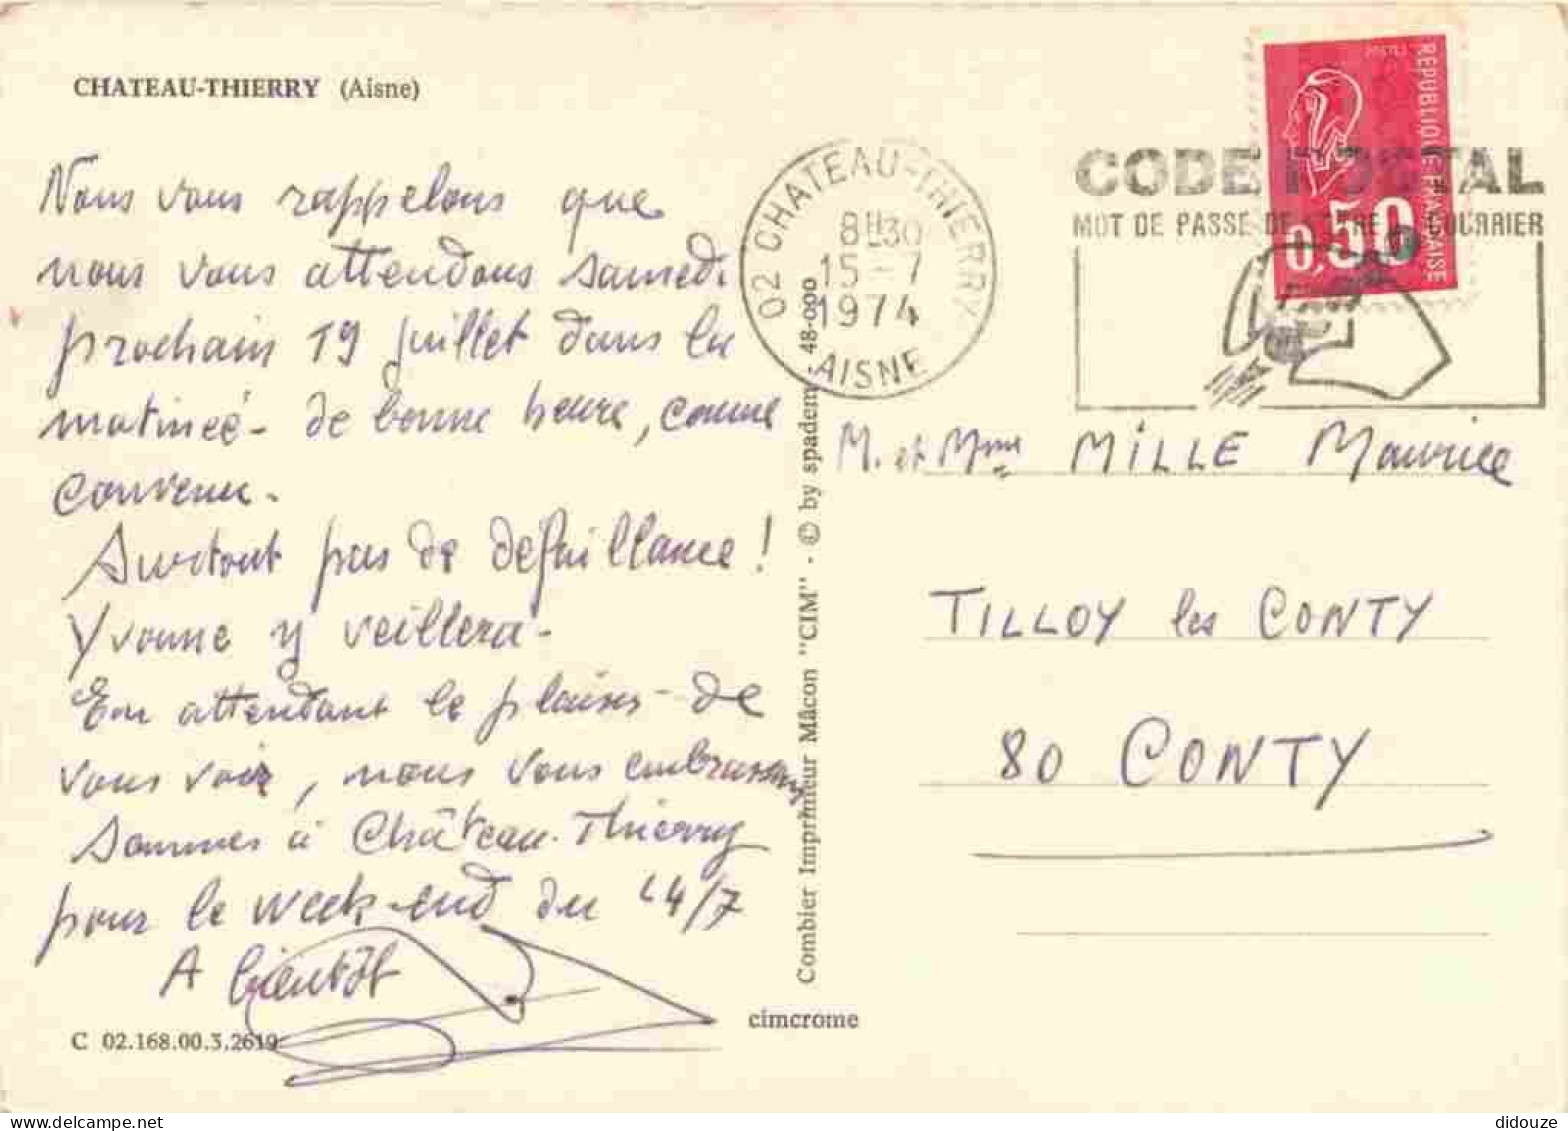 CHATEAU-THIERRY (Aisne)
Nous vous rappelons que
nous vous attendons samedi
prochain 19 juillet dans la
matinée - de bonne heure, comme
convenu.
Surtout pas de défaillance !
Yvonne y veillera -
En attendant le plaisir de
vous voir, nous vous embrassons
sommes à Château-Thierry
pour le week-end du 14/7
A bientôt
C 02.168.00.3.2619
Combier Imprimeur Mâcon "CIM" - © by spadem 48-000
cimcrome
02 CHATEAU-THIERRY
8H30
15 - 7
1974
AISNE
CODE POSTAL
MOT DE PASSE DE VOTRE COURRIER
POSTES
REPUBLIQUE FRANCAISE
0,50
M. et Mme MILLE Maurice
TILLOY les CONTY
80 CONTY
didouze